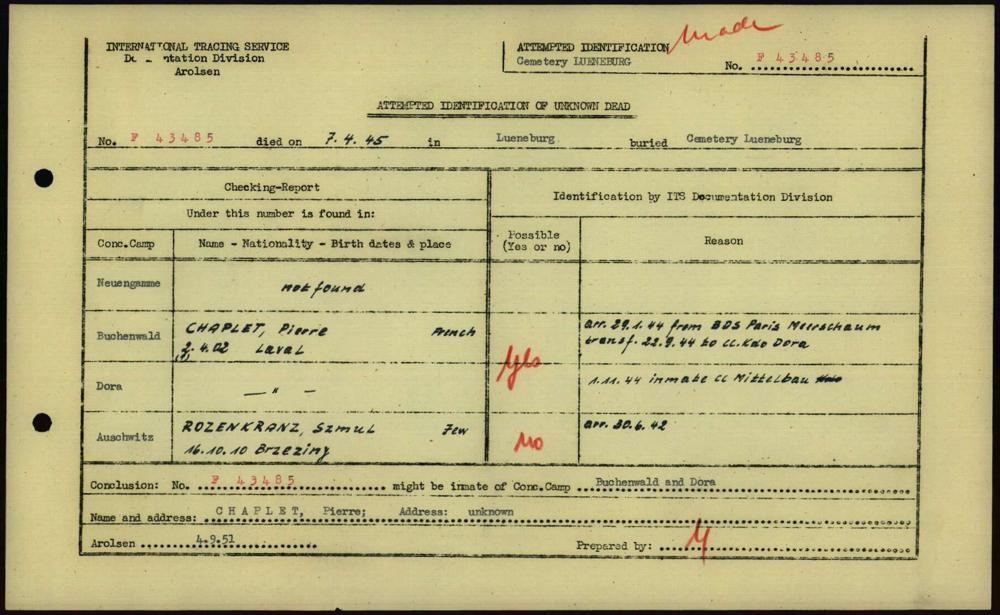 made
INTERNATIONAL TRACING SERVICE
Documentation Division
Arolsen
ATTEMPTED IDENTIFICATION
Cemetery LUENEBURG
No. F 43485
ATTEMPTED IDENTIFICATION OF UNKNOWN DEAD
No. F 43485 died on 7.4.45 in Lueneburg buried Cemetery Lueneburg
Checking-Report
Identification by ITS Documentation Division
Under this number is found in:
Conc.Camp
Name - Nationality - Birth dates & place
Possible
(Yes or no)
Reason
Neuengamme
not found
Buchenwald
CHAPLET, Pierre French
2.4.02 Laval
yes
arr. 29.1.44 from BDS Paris Meerschaum
transf. 22.9.44 to CC.Kdo Dora
Dora
— " —
1.11.44 inmate CC Mittelbau
Auschwitz
ROZENKRANZ, Szmul Jew
16.10.10 Brzeziny
no
arr. 30.6.42
Conclusion: No. F 43485 might be inmate of Conc.Camp Buchenwald and Dora
Name and address: CHAPLET, Pierre; Address: unknown
Arolsen 4.9.51
Prepared by: